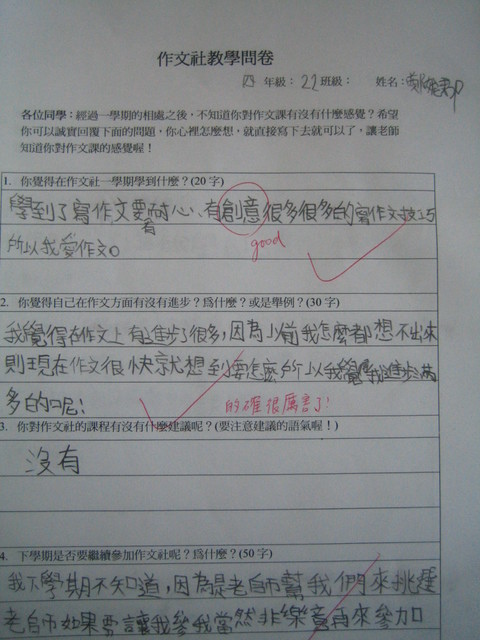 作文社教學問卷
四 年級：22班級： 姓名：鄭
各位同學：經過一學期的相處之後，不知道你對作文課有沒有什麼感覺？希望
你可以誠實回覆下面的問題，你心裡怎麼想，就直接寫下去就可以了，讓老師
知道你對作文課的感覺喔！
1. 你覺得在作文社一學期學到什麼？(20 字)
學到了寫作文要有耐心、有創意很多很多的寫作文技巧
good
所以我愛作文。
2. 你覺得自己在作文方面有沒有進步？為什麼？或是舉例？(30 字)
我覺得在作文上有進步了很多，因為以前我怎麼都想不出來
則現在作文很快就想到要怎麼，所以我覺得我進步滿
多的呢！
的確很厲害了！
3. 你對作文社的課程有沒有什麼建議呢？(要注意建議的語氣喔！)
沒有
4. 下學期是否要繼續參加作文社呢？為什麼？(50 字)
我下學期不知道，因為是老師幫我們來挑選
老師如果要讓我參我當然非樂意再來參加